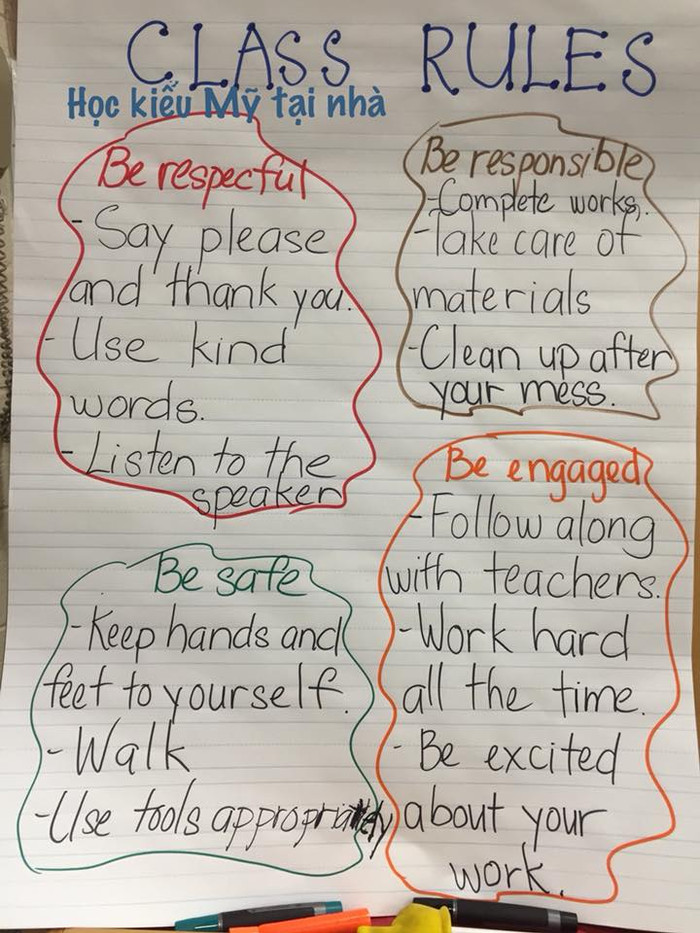 CLASS RULES
Học kiểu Mỹ tại nhà
Be respecful
- Say please
and thank you.
- Use kind
words.
- Listen to the
speaker
Be responsible
- Complete works.
- Take care of
materials
- Clean up after
your mess.
Be safe
- Keep hands and
feet to yourself.
- Walk
- Use tools appropriately
Be engaged
- Follow along
with teachers.
- Work hard
all the time.
- Be excited
about your
work.